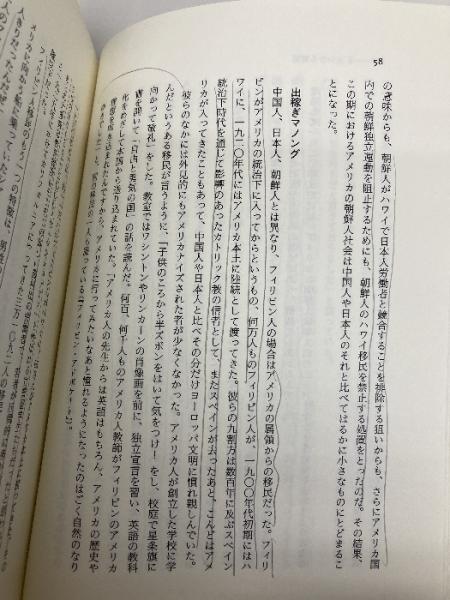 58
の意味からも、朝鮮人がハワイで日本人労働者と競合することを排除する狙いからも、さらにアメリカ国
内での朝鮮独立運動を阻止するためにも、朝鮮人のハワイ移民を禁止する処置をとったのだ。その結果、
この期におけるアメリカの朝鮮人社会は中国人や日本人のそれと比べてはるかに小さなものにとどまるこ
とになった。
出稼ぎマノング
中国人、日本人、朝鮮人とは異なり、フィリピン人の場合はアメリカの属領からの移民だった。フィリ
ピンがアメリカの統治下に入ってからというもの、何万人ものフィリピン人が、一九〇〇年代初期にはハ
ワイに、一九二〇年代にはアメリカ本土に陸続として渡ってきた。彼らの九割方は数百年に及ぶスペイン
統治下時代を通じて影響されたカトリック教の信者として、またスペインが去ったあと、こんどはアメ
リカが入ってきたこともあって、中国人や日本人と比べその分だけヨーロッパ文明に慣れ親しんでいた。
彼らのなかには外見的にもアメリカナイズされた者が少なくなかった。アメリカ人が創立した学校に学
んだというある移民が言うように、「子供のころから半ズボンをはいて気をつけ！をし、校庭で星条旗に
向かって敬礼」をした。教室ではワシントンやリンカーンの肖像画を前に、独立宣言を習い、英語の教科
書を開いて「自由と勇気の国」の話を読んだ。何百、何千人ものアメリカ人教師がフィリピンのアメリカ
化をめざして本国から送り込まれていた。「アメリカ人の先生からは英語はもちろん、アメリカの歴史や
アメリカに行ってみたいなあと憧れるようになったのはごく自然のなり
フィリピン人移民のもう一つの特徴は、男性
メリカに向かう船に乗っていたとき
人きりだ」「たんだぜ。